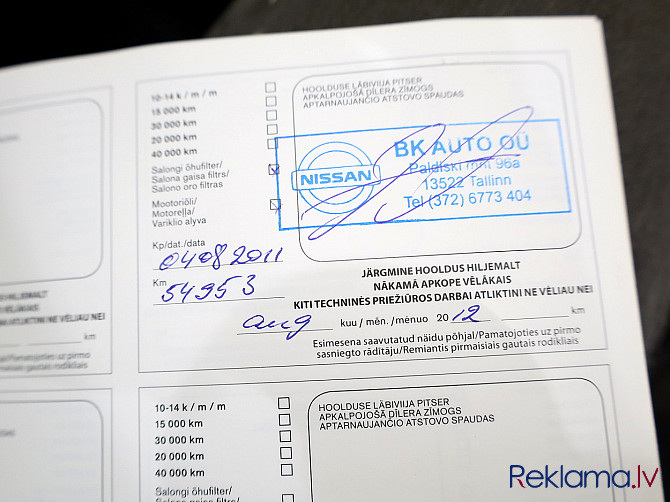 10-14 k / m / m
15 000 km
30 000 km
20 000 km
40 000 km
Salongi õhufilter/
Salona gaisa filtrs/
Salono oro filtras
Mootoriõli/
Motoreļļa/
Variklio alyva
Kp/dat./data
04082011
Km
54953
HOOLDUSE LÄBIVIIJA PITSER
APKALPOJOŠĀ DĪLERA ZĪMOGS
APTARNAUJANČIO ATSTOVO SPAUDAS
NISSAN
BK AUTO OÜ
Paldiski mnt 96a
13522 Tallinn
Tel (372) 6773 404
JÄRGMINE HOOLDUS HILJEMALT
NĀKAMĀ APKOPE VĒLĀKAIS
KITI TECHNINĖS PRIEŽIŪROS DARBAI ATLIKTINI NE VĖLIAU NEI
aug kuu / mēn. / mėnuo 20 12 km
Esimesena saavutatud näidu põhjal/Pamatojoties uz pirmo
sasniegto rādītāju/Remiantis pirmaisiais gautais rodikliais
HILJEMALT
VĒLĀKAIS
ATLIKTINI NE VĖLIAU NEI
km
põhjal/Pamatojoties uz pirmo
gautais rodikliais
10-14 k / m / m
15 000 km
30 000 km
20 000 km
40 000 km
Salongi õhufilter/
Salona gaisa filtrs/
HOOLDUSE LÄBIVIIJA PITSER
APKALPOJOŠĀ DĪLERA ZĪMOGS
APTARNAUJANČIO ATSTOVO SPAUDAS
Reklama.lv